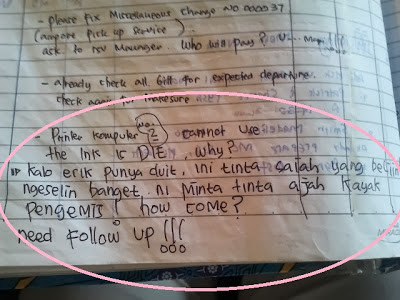 - please fix Miscellaneous Change No 000037
(airport pick up service)
ask to rsv Manager. Who will pay?
- already check all bill for expected departure.
check again for makesure
- Printer Komputer No. 2 cannot use
the Ink is DIE, why?
kalo erik punya duit. ini tinta salah yang beliin
ngeselin banget. ni Minta tinta ajah kayak
pengemis! how come?
need Follow up !!!